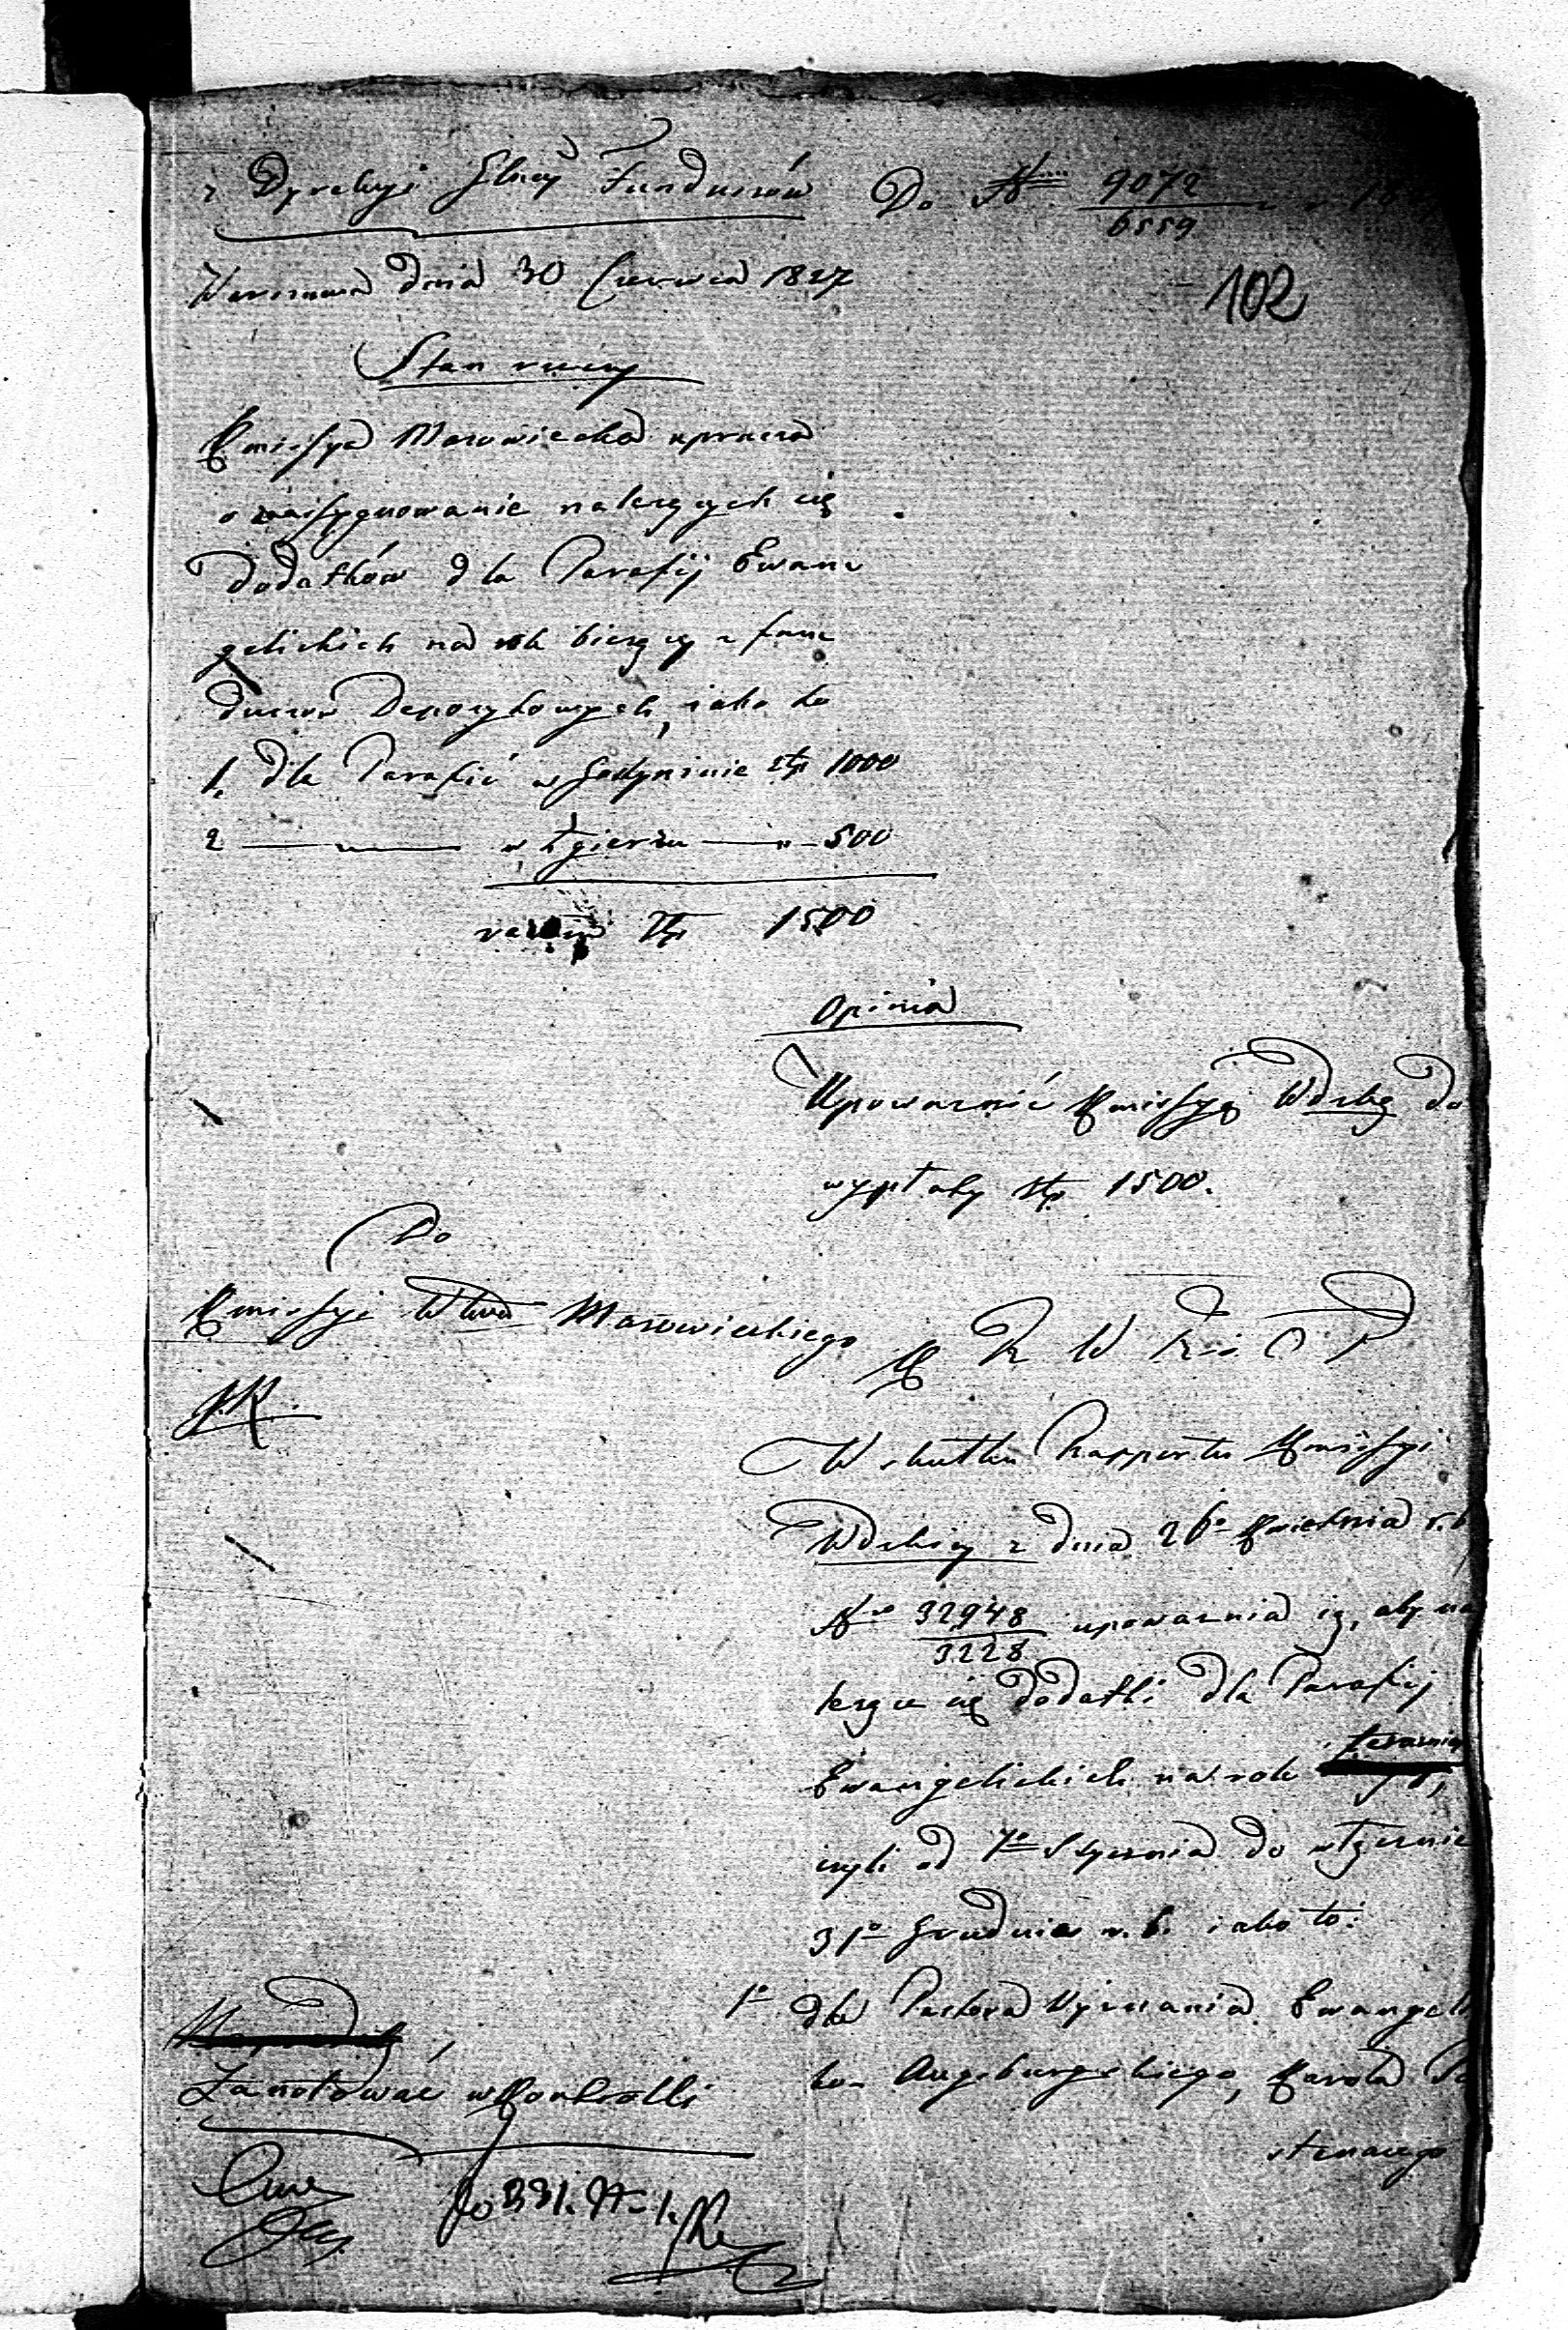 z Dyrekcyi Głney Funduszów Do Nru 9072/6559
Warszawa dnia 30 Czerwca 1827
102
Stan rzeczy
Kmissya Mazowiecka uprasza
o zaassygnowanie należących się
dodatków dla Parafij Ewan-
gelickich na rok bieżący z fun-
duszów Depozytowych, iako to
1. dla Parafii w Gostyninie złp 1000
2 — „ — w Zgierzu — „ — 500
razem złp 1500
Opinia
Upoważnić Kmissyę Wdzką do
wypłaty złp. 1500.
Do
Kmissyi Wtwa Mazowieckiego
K R W R i O P
W skutku Rapportu Kmissyi
Wdzkiey z dnia 26° Kwietnia r. b.
Nro 32948/3228 upoważnia ią, aby na-
leżące się dodatki dla Parafij
Ewangelickich na rok teraźniey
czyli od 1° Stycznia do włącznie
31° Grudnia r. b. iako to:
1° dla Pastora Wyznania Ewangeli
ko-Augsburgskiego, Karola
Zanotować w Kontrolli